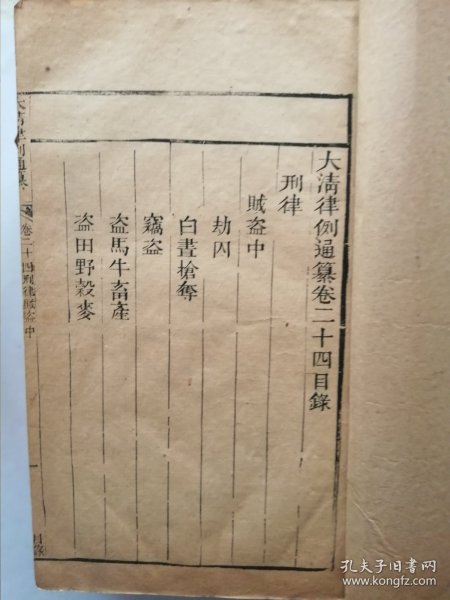 大清律例通纂卷二十四目錄
刑律
賊盗中
劫囚
白晝搶奪
竊盗
盗馬牛畜產
盗田野穀麥
大清律例通纂
卷二十四刑律賊盗中
一
目錄
孔夫子旧书网
www.kongfz.com